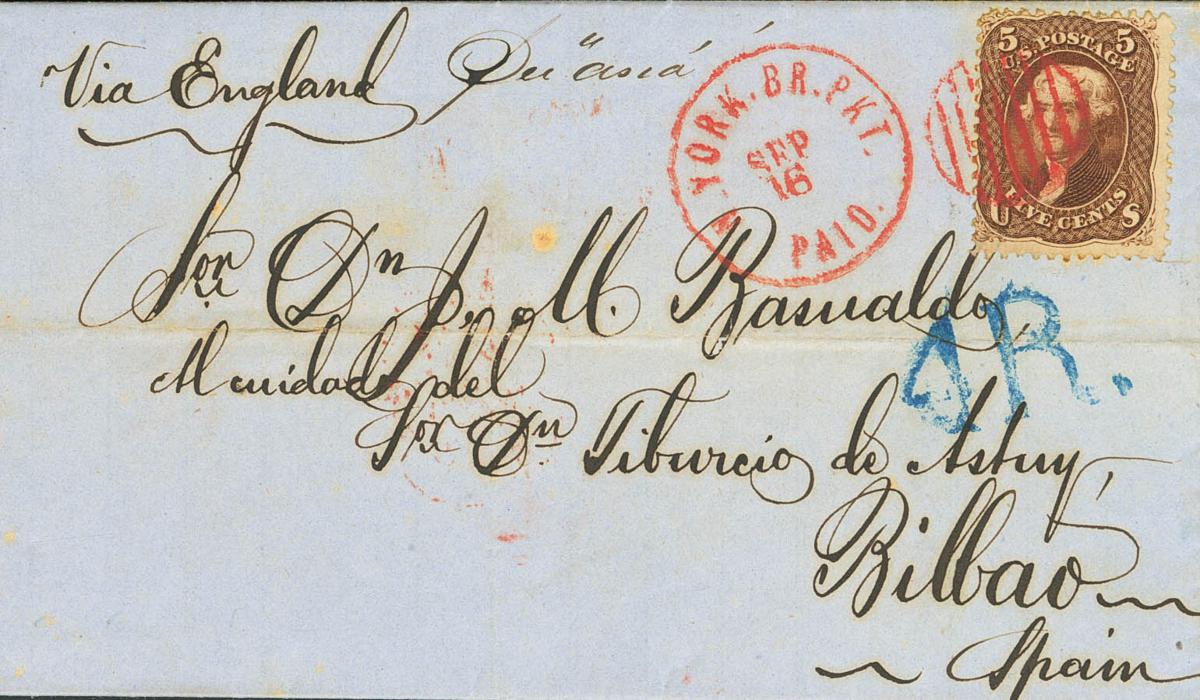 Via England Per "Asia"
N. YORK. BR. PKT.
SEP
16
PAID.
5 U.S. POSTAGE 5
U FIVE CENTS S
Sor. Dn J. M. Basualdo,
Al cuidado del
Sor Dn Tiburcio de Astuy,
4R.
Bilbao
Spain